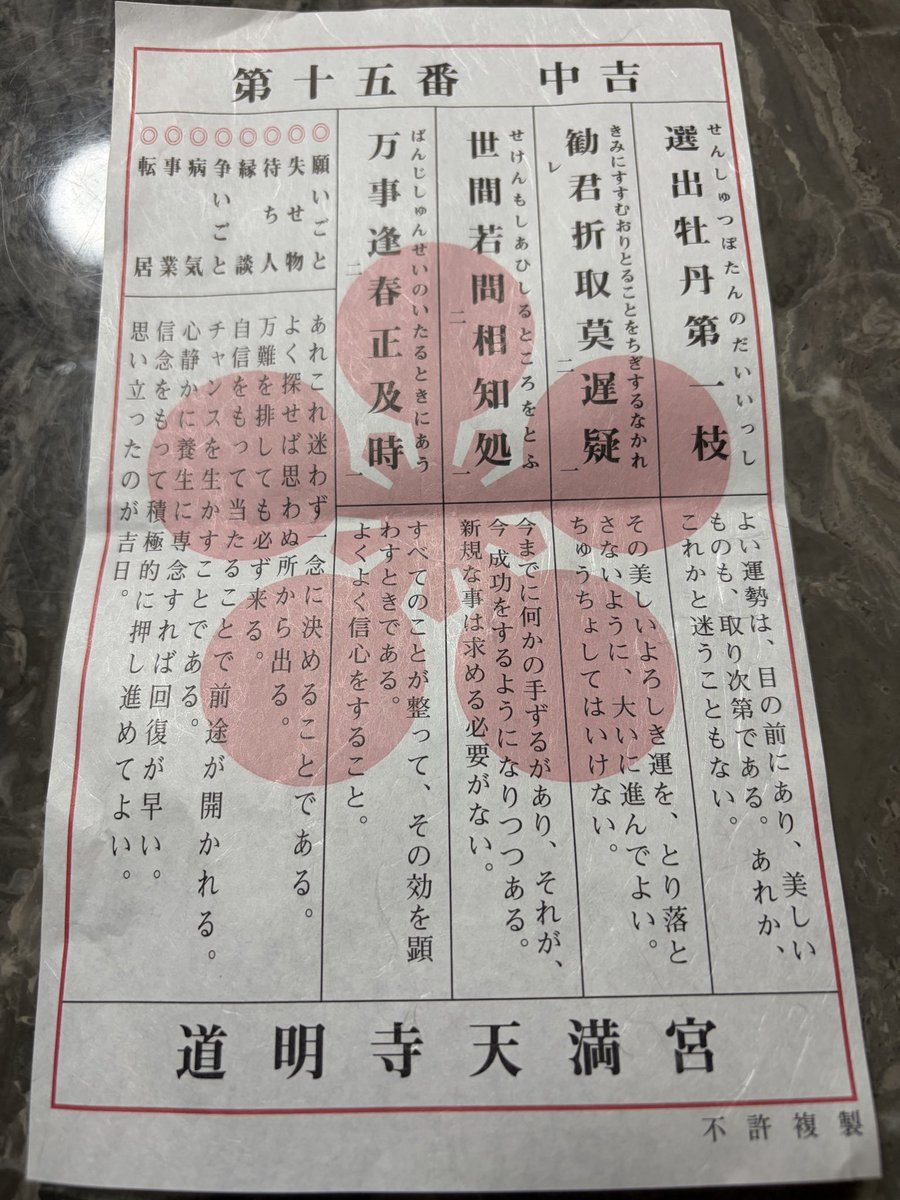 第十五番　中吉
せんしゅつぼたんのだいいっし
選出牡丹第一枝
よい運勢は、目の前にあり、美しい
ものも、取り次第である。あれか、
これかと迷うこともない。
きみにすすむおりとることをちぎするなかれ
勧レ君折取莫二遅疑一
その美しいよろしき運を、とり落と
さないように、大いに進んでよい。
ちゅうちょしてはいけない。
せけんもしあひしるところをとふ
世間若問二相知処一
今までに何かの手ずるがあり、それが、
今 成功をするようになりつつある。
新規な事は求める必要がない。
ばんじしゅんせいのいたるときにあう
万事逢二春正及時一
すべてのことが整って、その効を顕
わすときである。
よくよく信心をすること。
◎願いごと　あれこれ迷わず一念に決めることである。
◎失せ物　よく探せば思わぬ所から出る。
◎待ち人　万難を排しても必ず来る。
◎縁談　自信をもって当たることで前途が開かれる。
◎争いごと　チャンスを生かすことである。
◎病気　心静かに養生に専念すれば回復が早い。
◎事業　信念をもって積極的に押し進めてよい。
◎転居　思い立ったのが吉日。
道明寺天満宮
不許複製